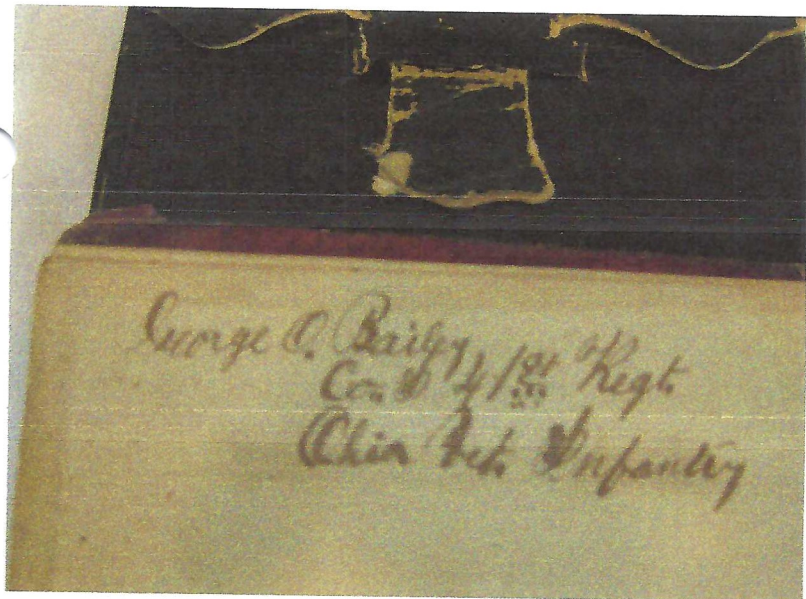 George O. Bailey
Co. D 41st Regt.
Ohio Vet. Infantry